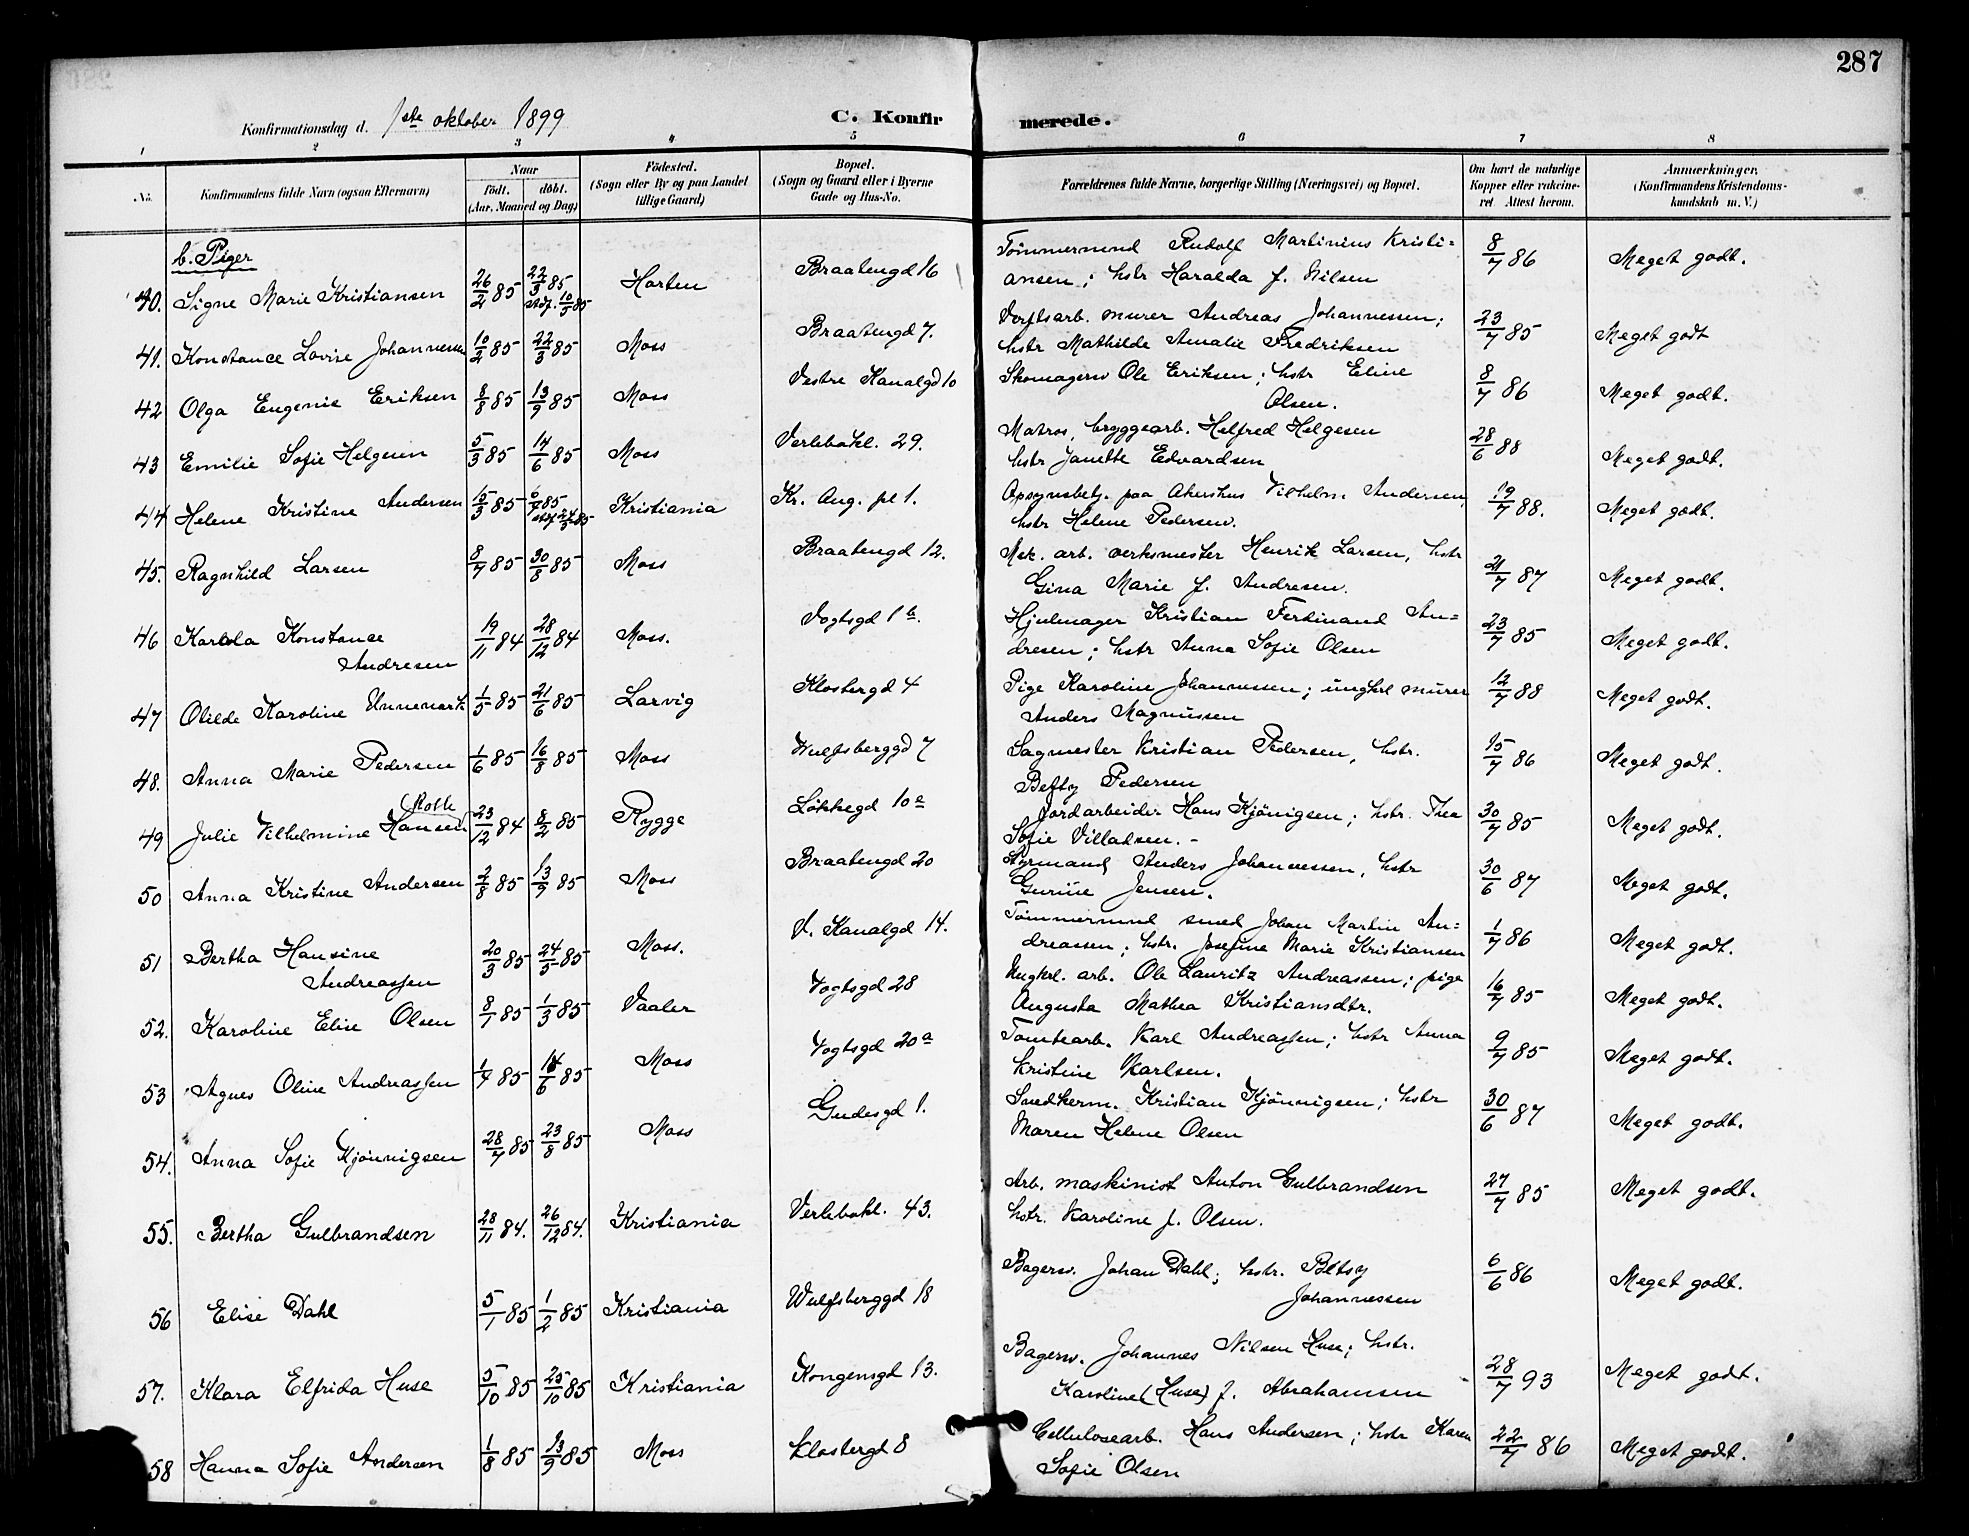 287
Konfirmationsdag d. 1ste oktober 1899 C. Konfirmerede.
1 2 3 4 5 6 7 8
No. Konfirmandens fulde Navn (ogsaa Efternavn) Naar født. døbt. (Aar, Maaned og Dag) Fødested. (Sogn eller By og paa Landet tillige Gaard) Bopæl. (Sogn og Gaard eller i Byerne Gade og Hus-No. Forældrenes fulde Navne, borgerlige Stilling (Næringsvei) og Bopæl. Om havt de naturlige Kopper eller vakcineret. Attest herom. Anmærkninger. (Konfirmandens Kristendomskundskab m. V.)
b. Piger
40. Signe Marie Kristiansen 26/2 85 22/3 85 stdf. 10/5 85 Horten Braatengd 16 Tømmermnd Rudolf Martinius Kristi=
ansen; hstr Haralda f. Nilsen 8/7 86 Meget godt.
41. Konstance Lovise Johannessen 10/2 85 22/3 85 Moss Braatengd 7. Verftsarb. murer Andreas Johannessen;
hstr Mathilde Amalie Fredriksen 23/7 85 Meget godt
42 Olga Eugenie Eriksen 8/8 85 13/9 85 Moss Vestre Kanalgd 10 Skomagersv Ole Eriksen; hstr Eline
Olsen. 8/7 86 Meget godt.
43 Emilie Sofie Helgesen 5/3 85 14/6 85 Moss Verlebakl. 29. Matros, bryggearb. Helfred Helgesen
hstr Janette Edvardsen 28/6 88 Meget godt.
44 Helene Kristine Andersen 15/3 85 6/4 85 stdf 24/5 85 Kristiania Kr. Aug. pl 1. Opsynsbetj. paa Akershus Vilhelm Andersen,
hstr Helene Pedersen. 19/7 88. Meget godt.
45. Ragnhild Larsen 8/7 85 30/8 85 Moss Braatengd 12. Mek. arb. verksmester Henrik Larsen, hstr
Gina Marie f. Andresen. 21/7 87 Meget godt.
46 Karlola Konstance
Andresen 19/11 84 28/12 84 Moss. Vogtsgd 1 b. Hjulmager Kristian Ferdinand An=
dresen; hstr Anna Sofie Olsen 23/7 85 Meget godt.
47 Olilde Karoline Unnemark 1/5 85 21/6 85 Larvig Klostergd 4 Pige Karoline Johannessen; ungkrl murer
Anders Magnussen 12/7 88 Meget godt.
48. Anna Marie Pedersen 1/6 85 16/8 85 Moss Wulfsberggd 7 Sagmester Kristian Pedersen, hstr.
Betty Pedersen 15/7 86 Meget godt.
49 Julie Vilhelmine Hansen 23/12 84 8/2 85 Rygge Løkkegd 10a Jordarbeider Hans Kjønigsen; hstr. Thea
Sofie Villadsen.- 30/7 85 Meget godt.
50 Anna Kristine Andersen 2/8 85 13/9 85 Moss Braatengd 20 Styrmand Anders Johannessen, hstr
Gurine Jensen. 30/6 87 Meget godt.
51 Bertha Hansine
Andreassen 20/3 85 24/5 85 Moss. V. Kanalgd 14. Tømmermnd smed Johan Martin An=
dreassen; hstr. Josefine Marie Kristiansen 1/7 86 Meget godt.
52. Karoline Elise Olsen 8/1 85 1/3 85 Vaaler Vogtsgd 28 Ungkrl. arb. Ole Lauritz Andreassen; pige
Augusta Mathea Kristiansdtr. 16/7 85 Meget godt.
53 Agnes Oline Andreassen 1/4 85 14/6 85 Moss Vogtsgd 20a Tomtearb. Karl Andreassen; hstr Anna
Kristine Karlsen. 9/7 85 Meget godt.
54. Anna Sofie Kjønnigsen 28/7 85 23/8 85 Moss Gudesgd 1. Snedkerm. Kristian Kjønnigsen; hstr
Maren Helene Olsen 30/6 87 Meget godt.
55. Bertha Gulbrandsen 28/11 84. 26/12 84. Kristiania Verlebakl. 43. Arb. maskinist Anton Gulbrandsen
hstr. Karoline f. Olsen. 27/7 85 Meget godt.
56 Elise Dahl 5/1 85 1/2 85 Kristiania Wulfsberggd 18 Bagersv. Johan Dahl; hstr. Betsy
Johannessen 6/6 86 Meget godt.
57. Klara Elfrida Huse 5/10 85 25/10 85 Kristiania Kongensgd 13. Bagersv. Johannes Nilsen Huse; hstr.
Karoline (Huse) f. Abrahamsen 28/7 93 Meget godt.
58 Hanna Sofie Andersen 1/8 85 13/9 85 Moss Klostergd 8 Cellulosearb. Hans Andersen; hstr Karen
Sofie Olsen 22/7 86 Meget godt.